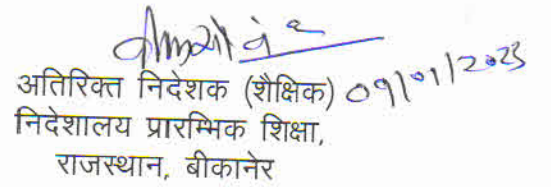 अतिरिक्त निदेशक (शैक्षिक) 09/01/2023
निदेशालय प्रारम्भिक शिक्षा,
राजस्थान, बीकानेर